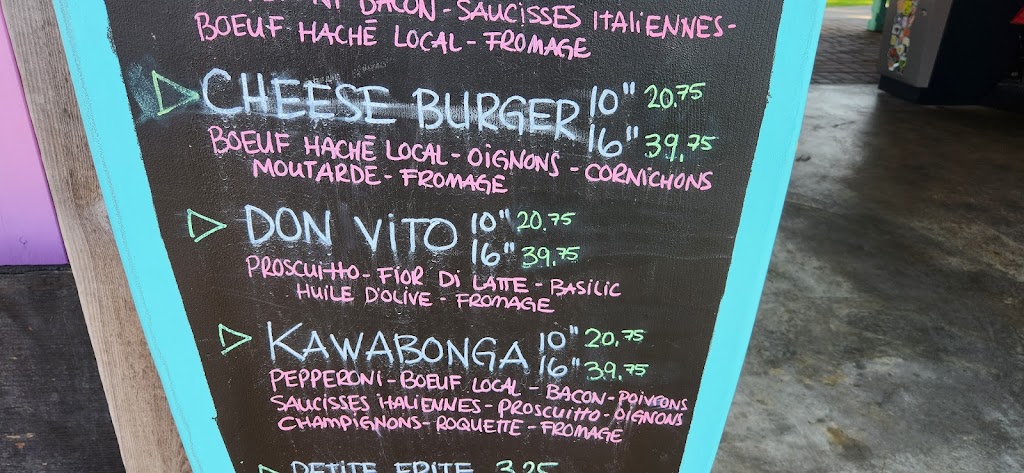 BACON - SAUCISSES ITALIENNES -
BOEUF HACHÉ LOCAL - FROMAGE
CHEESE BURGER 10" 20.75
16" 39.75
BOEUF HACHÉ LOCAL - OIGNONS - CORNICHONS
MOUTARDE - FROMAGE
DON VITO 10" 20.75
16" 39.75
PROSCUITTO - FIOR DI LATTE - BASILIC
HUILE D'OLIVE - FROMAGE
KAWABONGA 10" 20.75
16" 39.75
PEPPERONI - BOEUF LOCAL - BACON - POIVRONS
SAUCISSES ITALIENNES - PROSCUITTO - OIGNONS
CHAMPIGNONS - ROQUETTE - FROMAGE
PETITE FRITE 3.25